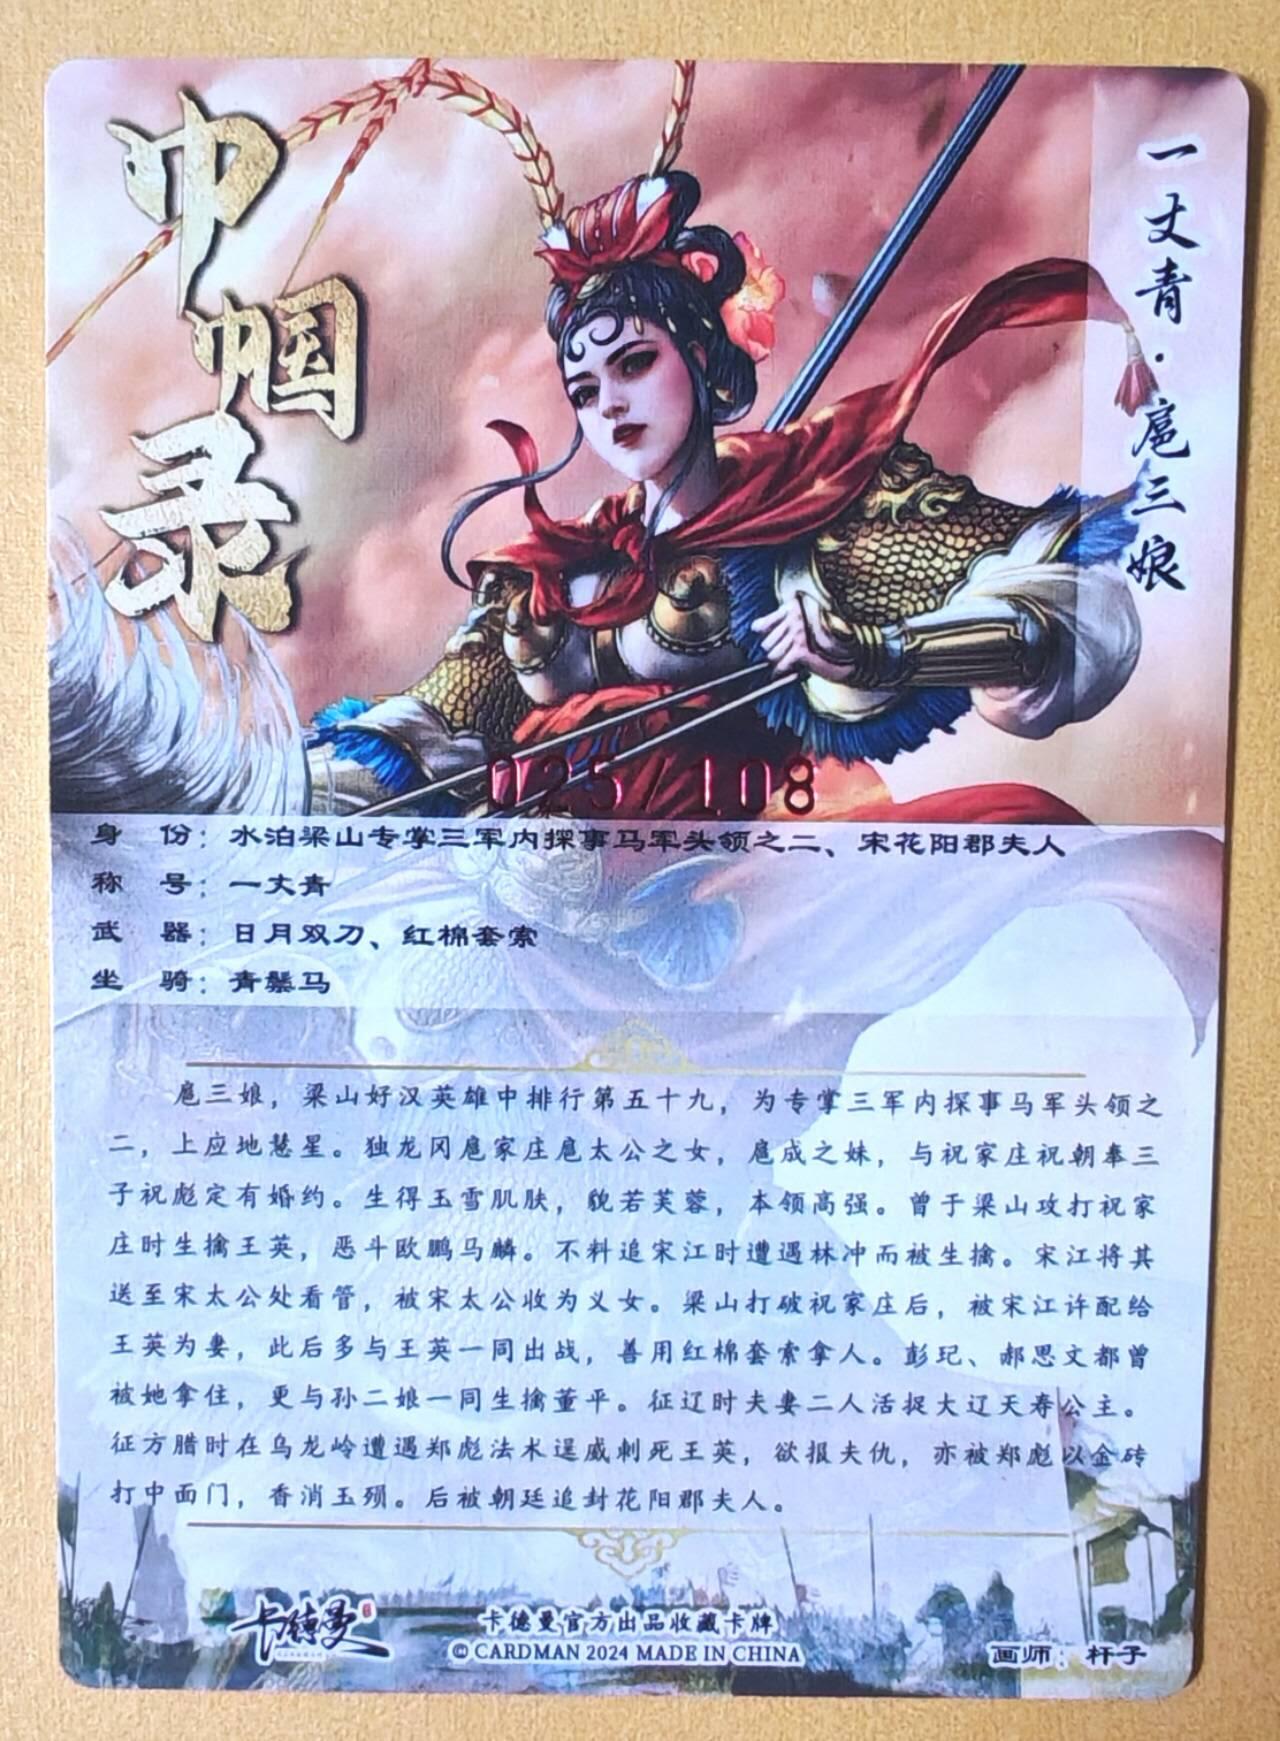 巾帼录
一丈青·扈三娘
025/108
身 份：水泊梁山专掌三军内探事马军头领之二、宋花阳郡夫人
称 号：一丈青
武 器：日月双刀、红棉套索
坐 骑：青鬃马
扈三娘，梁山好汉英雄中排行第五十九，为专掌三军内探事马军头领之
二，上应地慧星。独龙冈扈家庄扈太公之女，扈成之妹，与祝家庄祝朝奉三
子祝彪定有婚约。生得玉雪肌肤，貌若芙蓉，本领高强。曾于梁山攻打祝家
庄时生擒王英，恶斗欧鹏马麟。不料追宋江时遭遇林冲而被生擒。宋江将其
送至宋太公处看管，被宋太公收为义女。梁山打破祝家庄后，被宋江许配给
王英为妻，此后多与王英一同出战，善用红棉套索拿人。彭玘、郝思文都曾
被她拿住，更与孙二娘一同生擒董平。征辽时夫妻二人活捉大辽天寿公主。
征方腊时在乌龙岭遭遇郑彪法术逞威刺死王英，欲报夫仇，亦被郑彪以金砖
打中面门，香消玉殒。后被朝廷追封花阳郡夫人。
卡德曼
卡德曼官方出品收藏卡牌
© CARDMAN 2024 MADE IN CHINA
画师：杆子